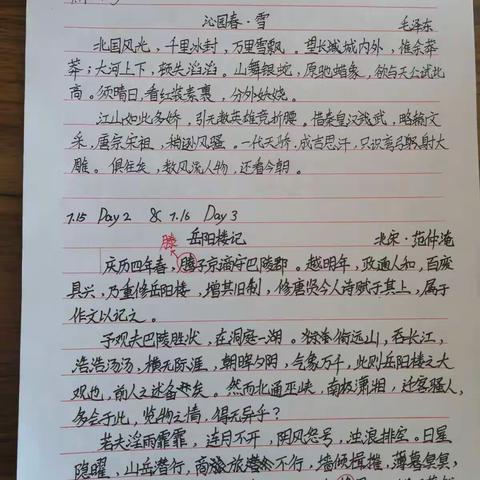 沁园春·雪
毛泽东
北国风光，千里冰封，万里雪飘。望长城内外，惟余莽
莽；大河上下，顿失滔滔。山舞银蛇，原驰蜡象，欲与天公试比
高。须晴日，看红装素裹，分外妖娆。
江山如此多娇，引无数英雄竞折腰。惜秦皇汉武，略输文
采，唐宗宋祖，稍逊风骚。一代天骄，成吉思汗，只识弯弓射大
雕。俱往矣，数风流人物，还看今朝。
7.15 Day 2 & 7.16 Day 3
滕 岳阳楼记 北宋·范仲淹
庆历四年春，子京谪守巴陵郡。越明年，政通人和，百废
具兴，乃重修岳阳楼，增其旧制，修唐贤今人诗赋于其上，属于
作文以记之。
予观夫巴陵胜状，在洞庭一湖。衔远山，吞长江，
浩浩汤汤，横无际涯，朝晖夕阴，气象万千，此则岳阳楼之大
观也，前人之述备矣。然而北通巫峡，南极潇湘，迁客骚人，
多会于此，览物之情，得无异乎？
若夫淫雨霏霏，连月不开，阴风怒号，浊浪排空。日星
隐曜，山岳潜行，商旅不行，墙倾楫摧，薄暮冥冥，